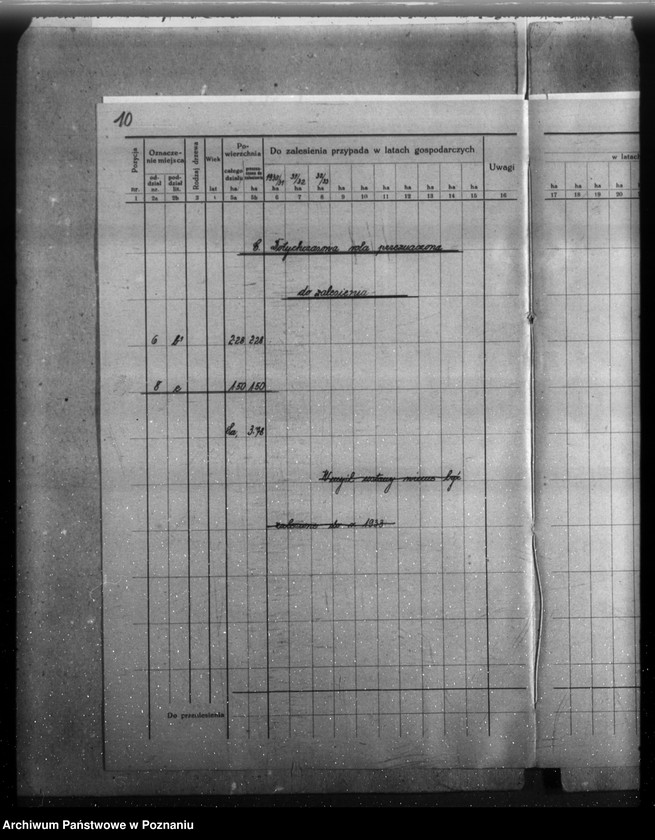 10
Pozycja
Oznacze-
nie miejsca
Rodzaj drzewa
Wiek
Po-
wierzchnia
Do zalesienia przypada w latach gospodarczych
Uwagi
w latach
od-
dział
pod-
dział
całego
działu
1930/31 31/32 32/33
nr. nr. lit. lat ha ha ha ha ha ha ha ha ha ha ha ha ha ha ha ha
1 2a 2b 3 4 5a 5b 6 7 8 9 10 11 12 13 14 15 16 17 18 19 20
C. Dotychczasowa rola przeznaczona
do zalesienia
6 b¹ 2.28 2.28
8 c 1.50 1.50
Ha. 3.78
winno być
zalesione do r. 1933
Do przeniesienia
Archiwum Państwowe w Poznaniu